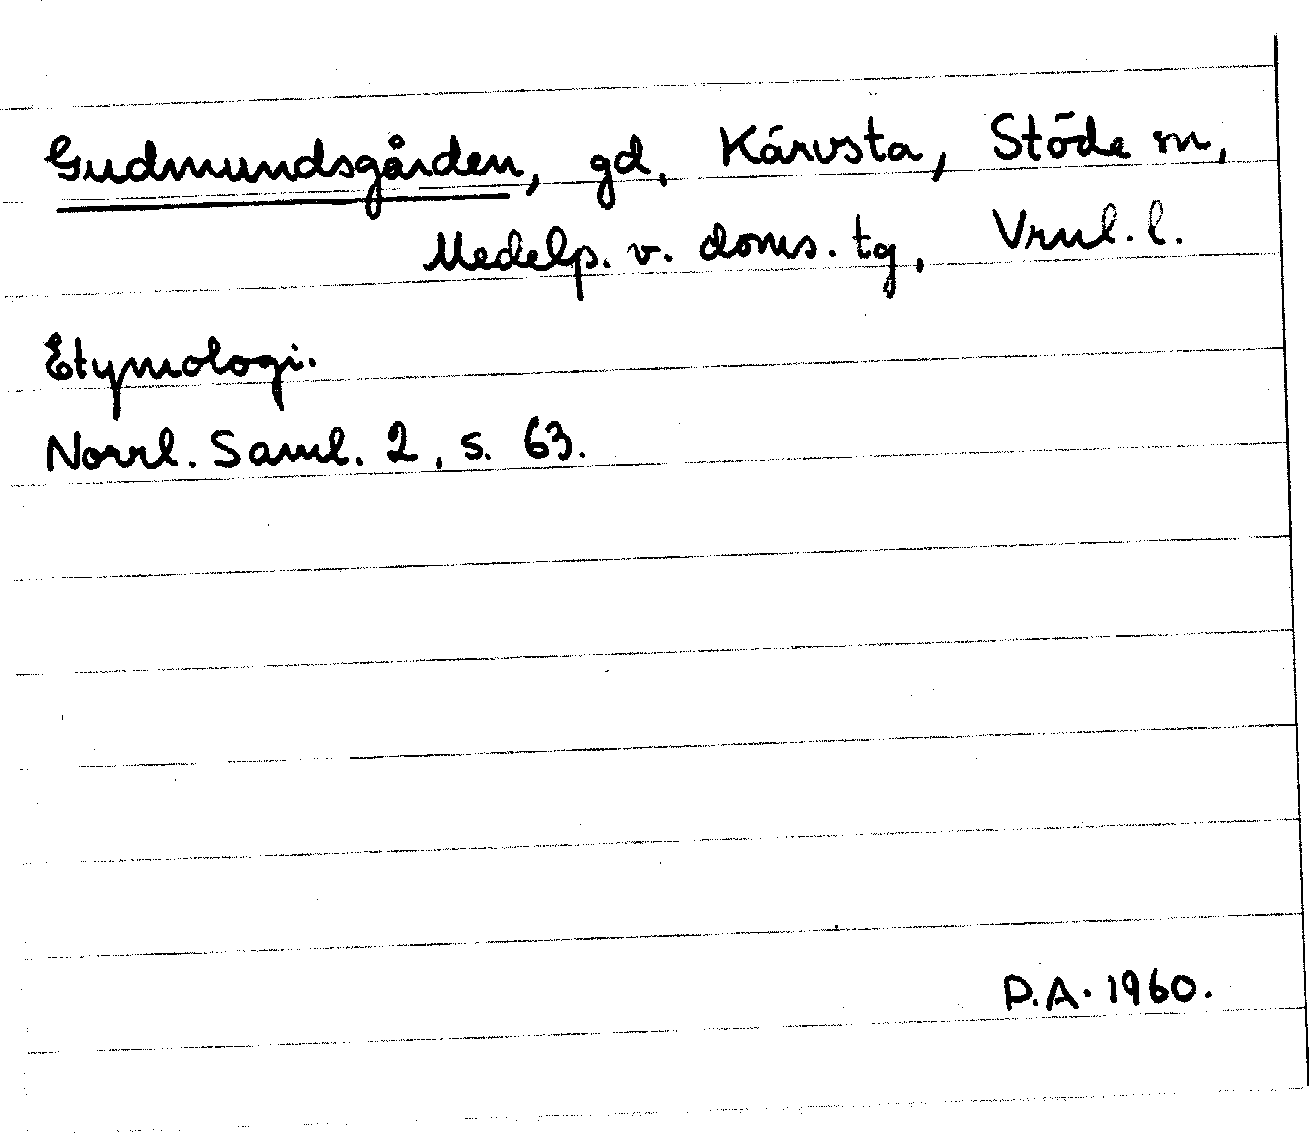 Gudmundsgården, gd, Kärvsta, Stöde sn,
Medelp. v. doms. tg, Vrnl. l.
Etymologi.
Norrl. Saml. 2, s. 63.
P.A. 1960.